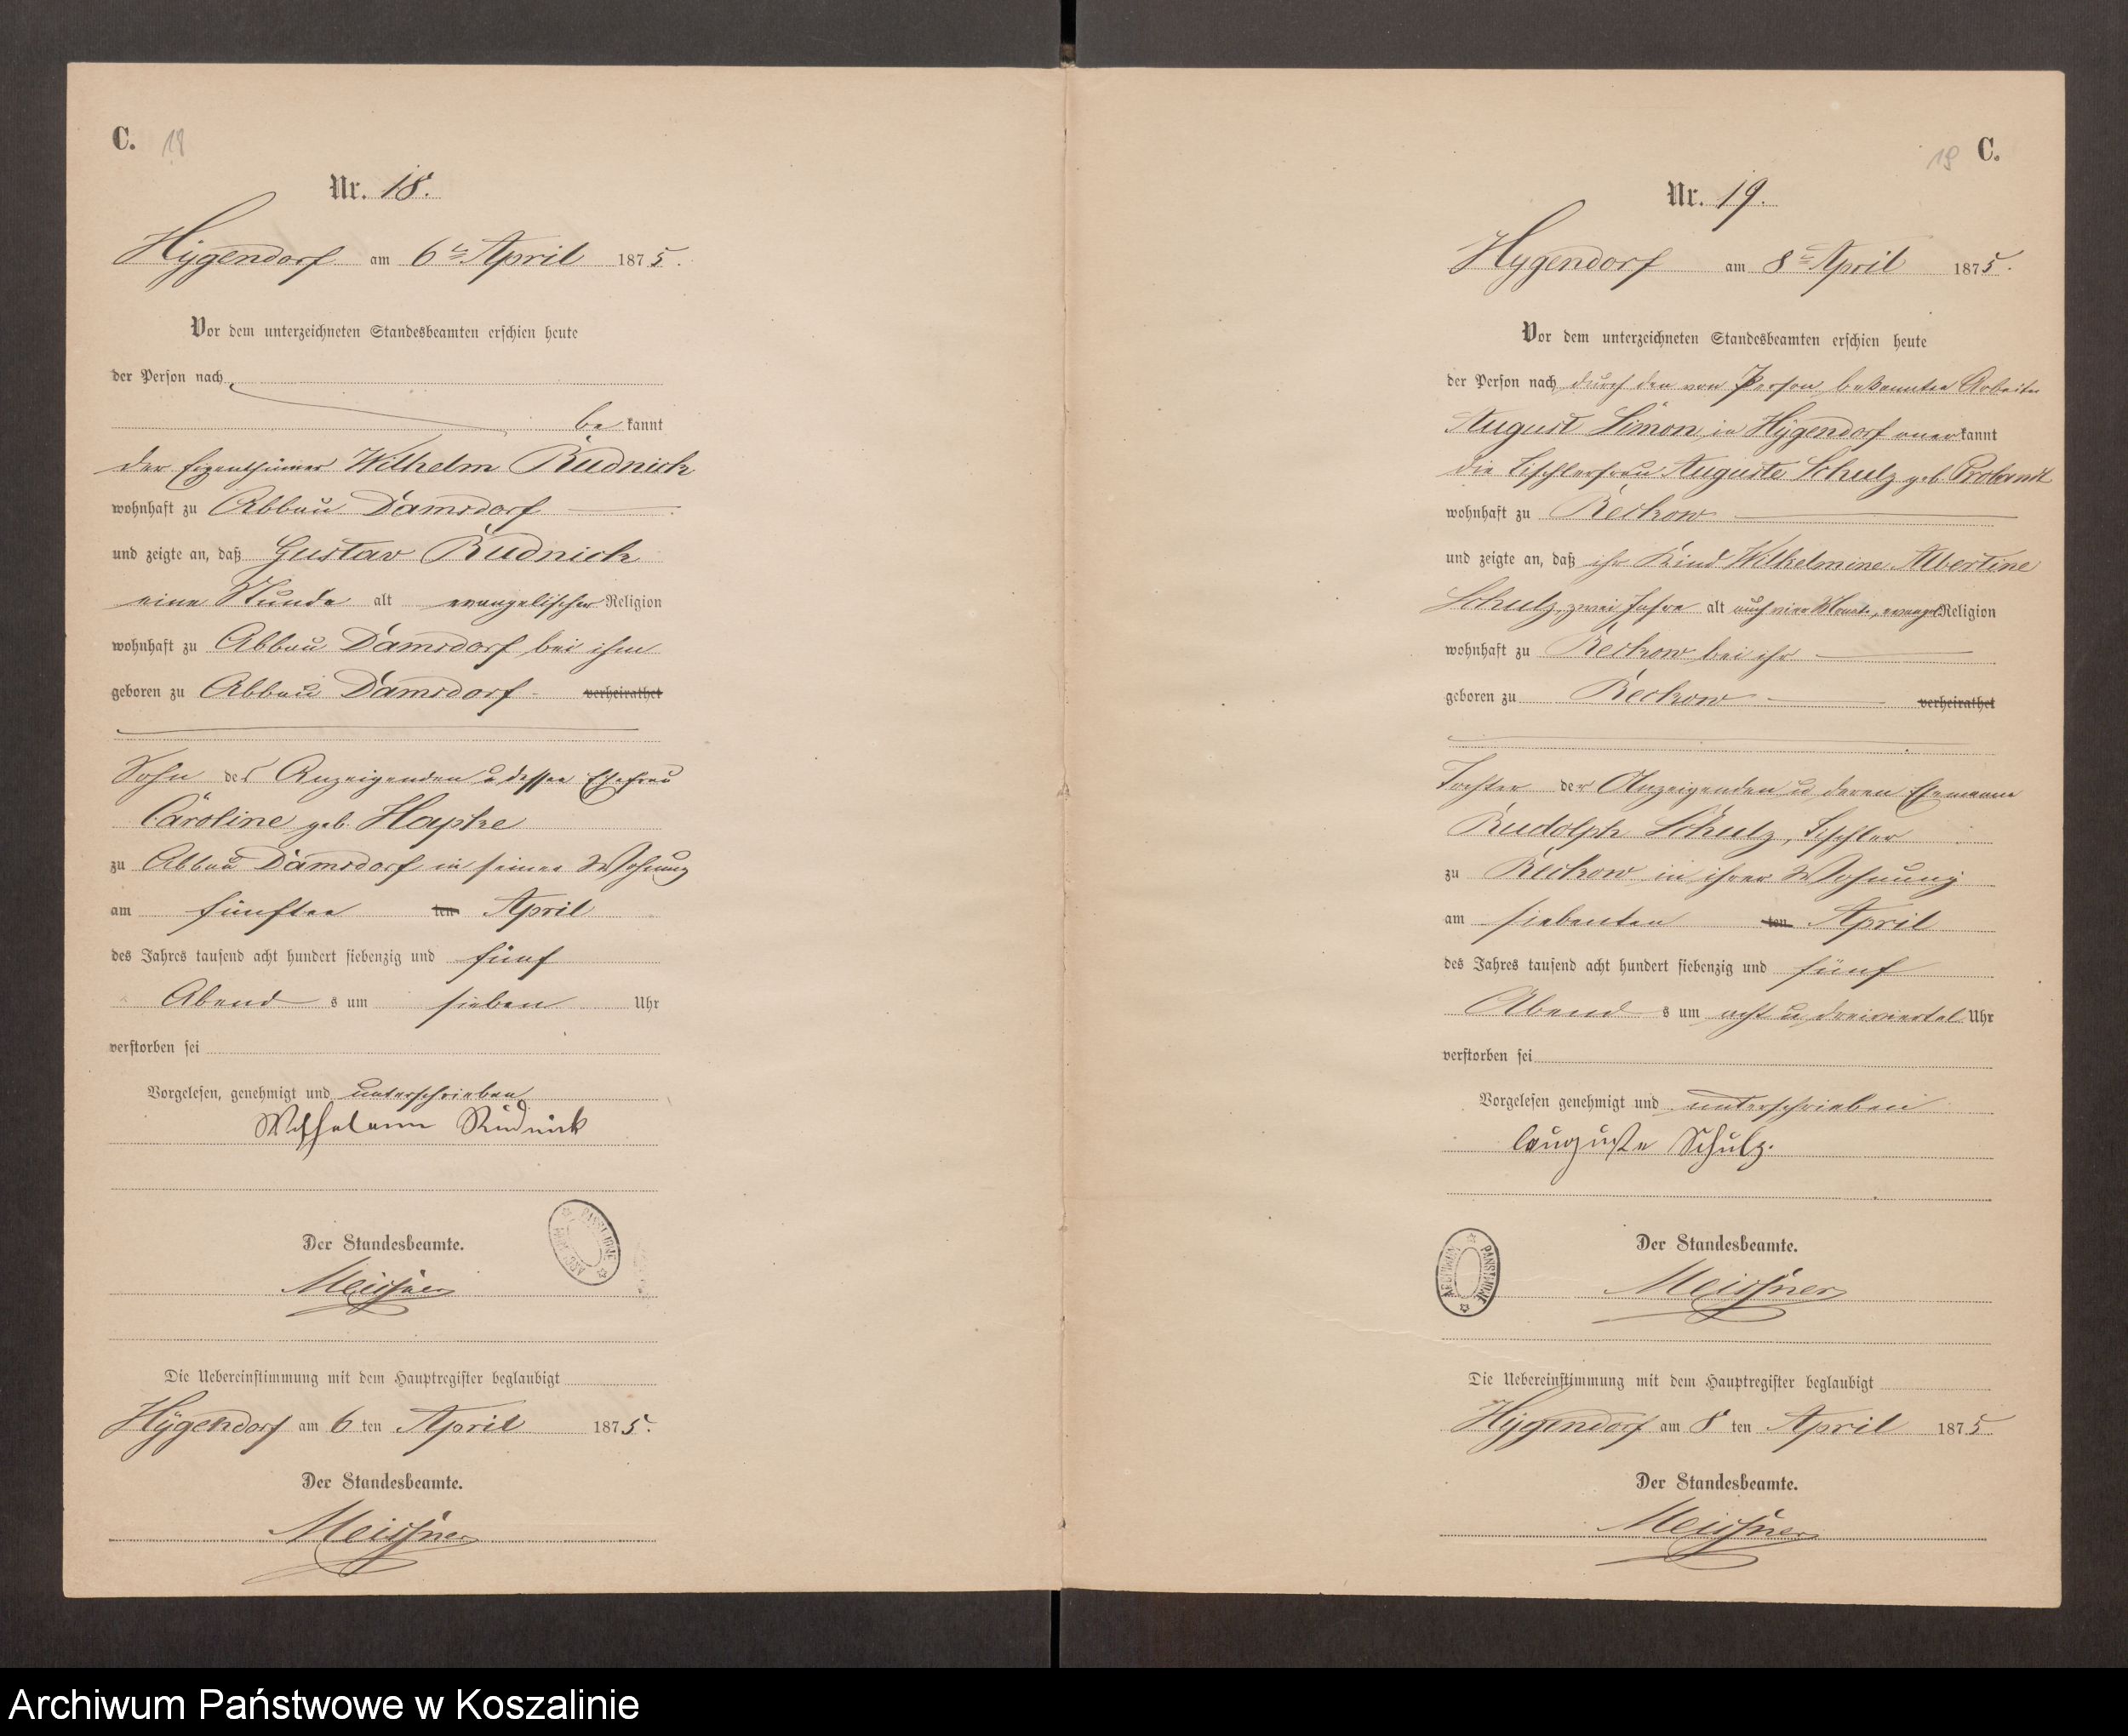 C. 18
Nr. 18.
Hygendorf am 6ten April 1875.
Vor dem unterzeichneten Standesbeamten erschien heute
der Person nach
bekannt
der Eigenthümer Wilhelm Rudnick
wohnhaft zu Abbau Damsdorf
und zeigte an, daß Gustav Rudnick
eine Stunde alt evangelischer Religion
wohnhaft zu Abbau Damsdorf bei ihm
geboren zu Abbau Damsdorf verheirathet
Sohn des Anzeigenden u dessen Ehefrau
Caroline geb. Hapke
zu Abbau Damsdorf in seiner Wohnung
am fünften ten April
des Jahres tausend acht hundert siebenzig und fünf
Abend s um sieben Uhr
verstorben sei
Vorgelesen, genehmigt und unterschrieben
Wilhelm Rudnick
Der Standesbeamte.
Meissner
Die Uebereinstimmung mit dem Hauptregister beglaubigt
Hygendorf am 6 ten April 1875.
Der Standesbeamte.
Meissner
19 C.
Nr. 19.
Hygendorf am 8ten April 1875.
Vor dem unterzeichneten Standesbeamten erschien heute
der Person nach durch den von Person bekannten Arbeiter
August Simon in Hygendorf anerkannt
die Tischlerfrau Auguste Schulz geb. Probandt
wohnhaft zu Reckow
und zeigte an, daß ihr Kind Wilhelmine Albertine
Schulz, zwei Jahre alt auch vier Monate, evangel Religion
wohnhaft zu Reckow bei ihr
geboren zu Reckow verheirathet
Tochter der Anzeigenden u deren Ehemann
Rudolph Schulz, Tischler
zu Reckow in ihrer Wohnung
am siebenten ten April
des Jahres tausend acht hundert siebenzig und fünf
Abend s um acht u dreiviertel Uhr
verstorben sei
Vorgelesen genehmigt und unterschrieben
Auguste Schulz.
ARCHIWUM PAŃSTWOWE
Der Standesbeamte.
Meissner
Die Uebereinstimmung mit dem Hauptregister beglaubigt
Hygendorf am 8 ten April 1875
Der Standesbeamte.
Meissner
Archiwum Państwowe w Koszalinie